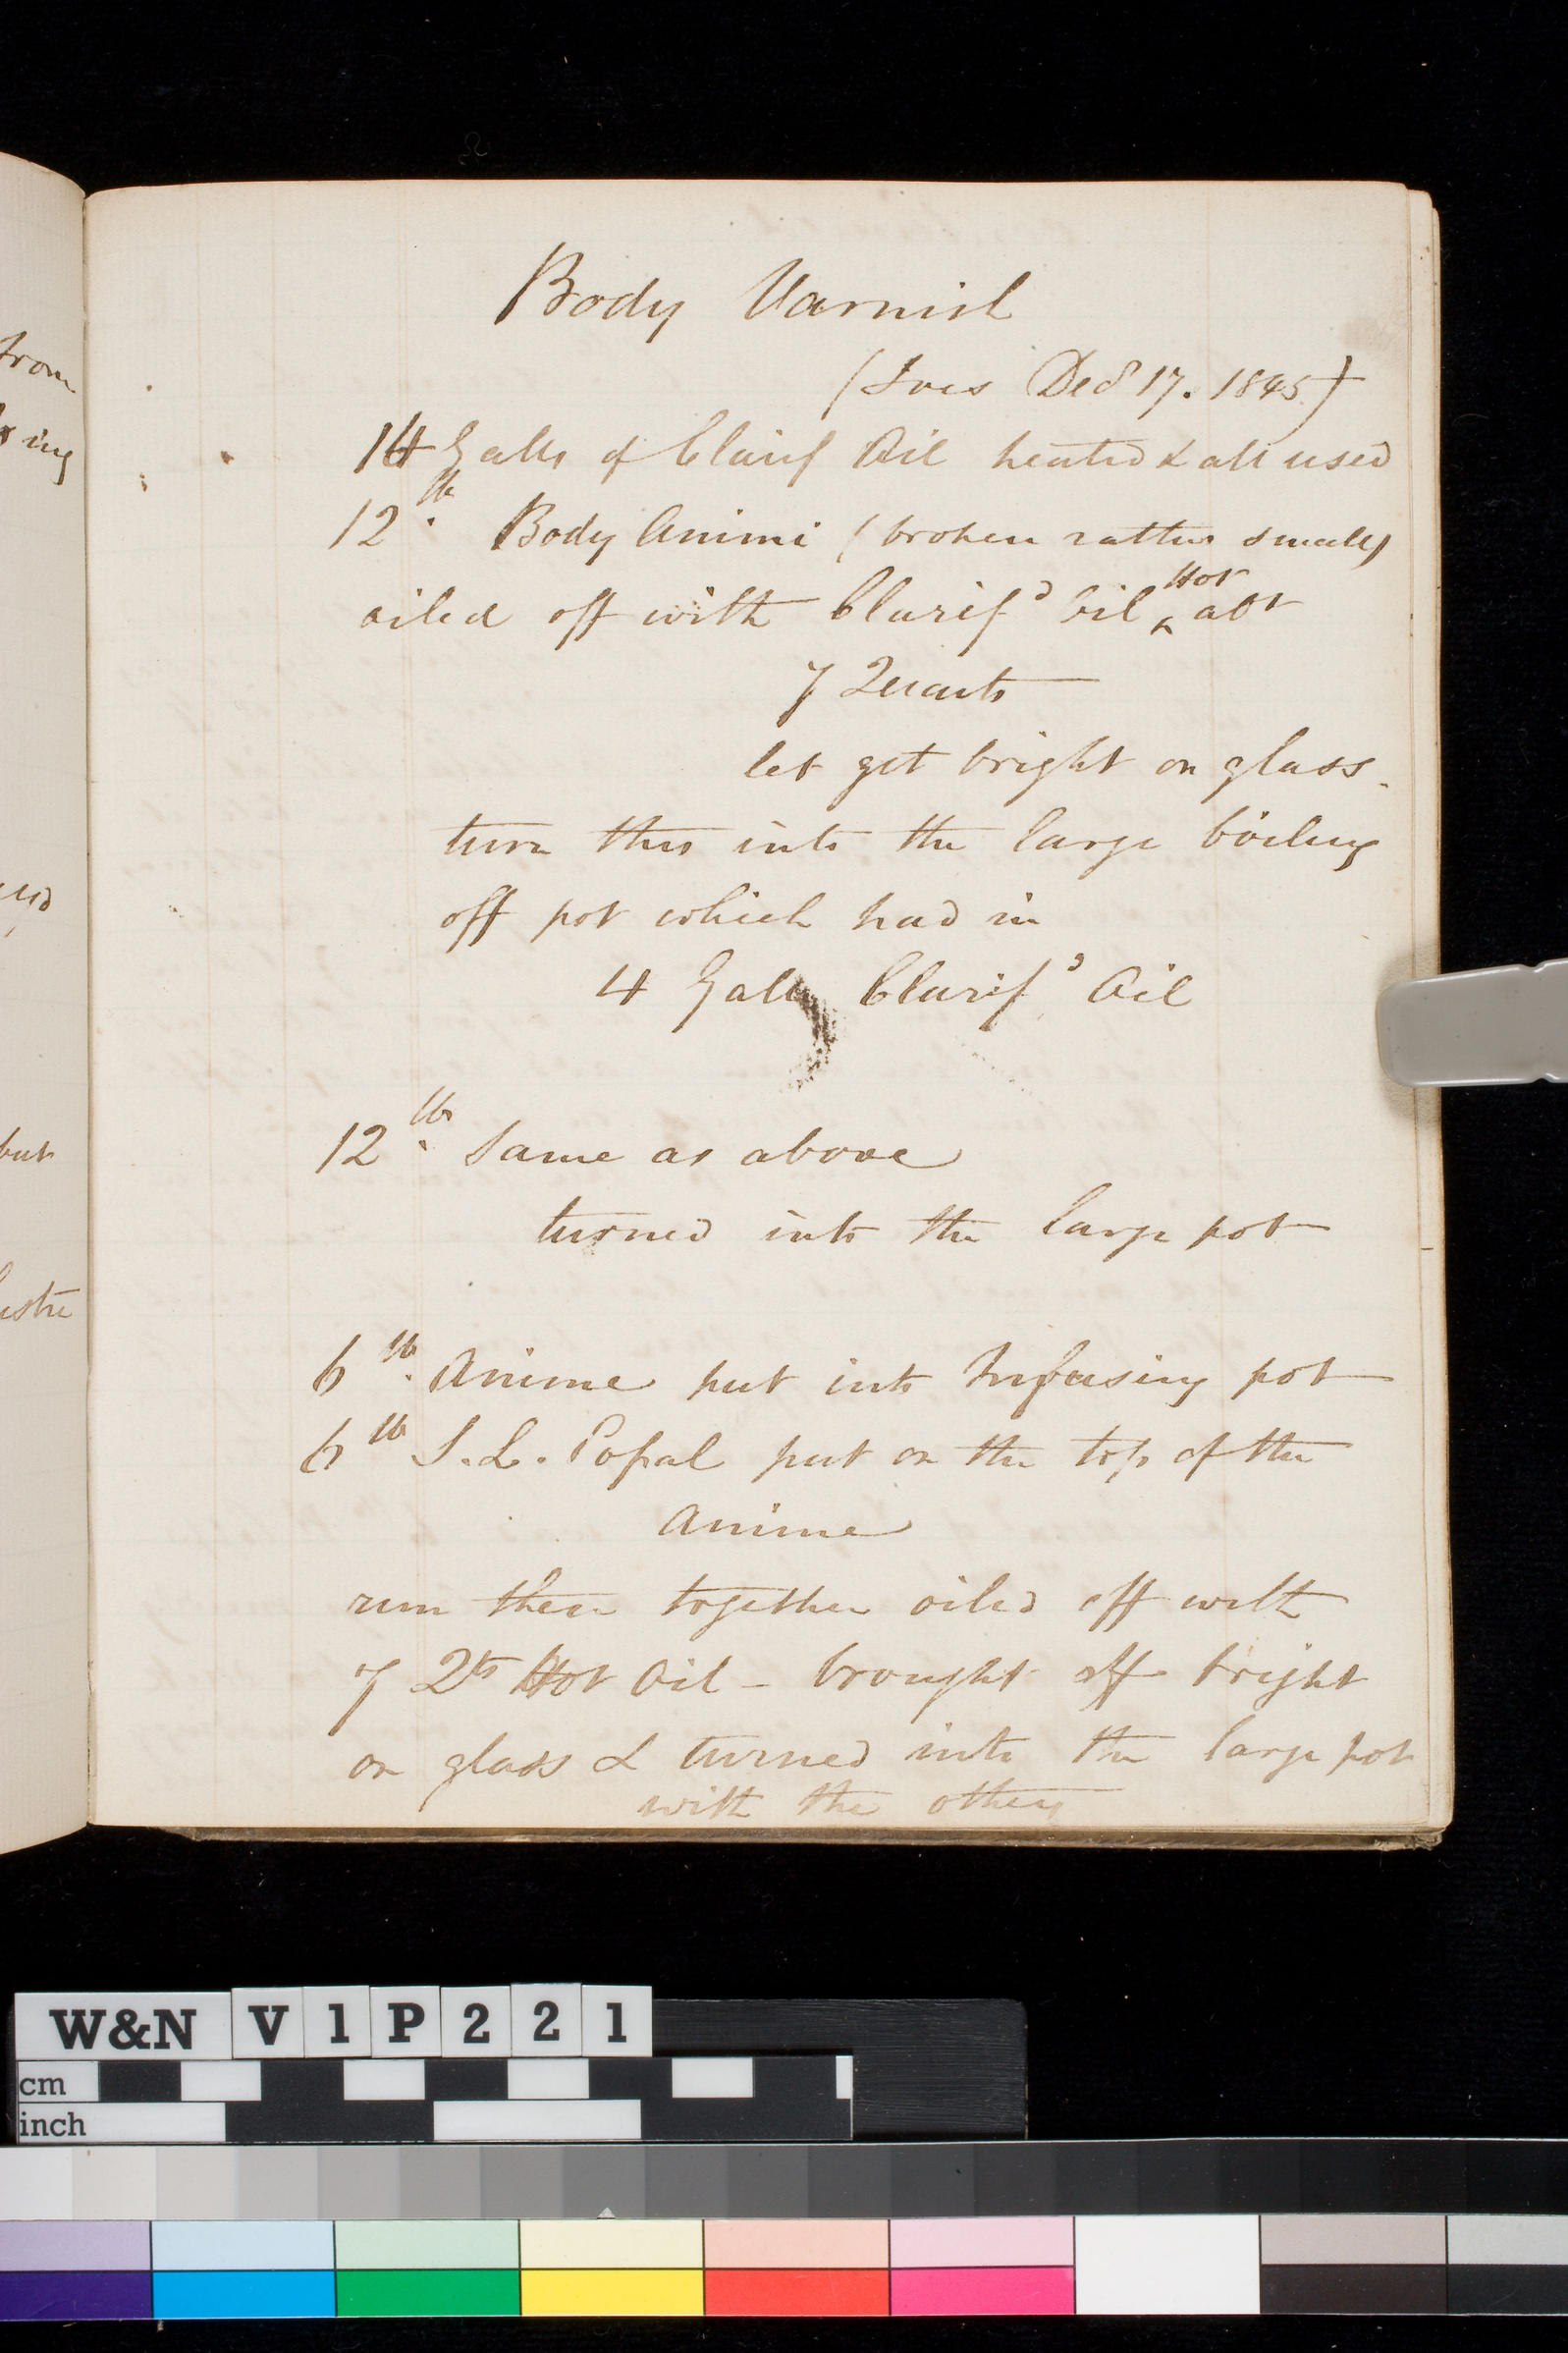 from
ing
but
Body Varnish
( Dec 17. 1845)
14 Galls of Clarif Oil heated & all used
12 lb. Body Animi (broken rather small)
oiled off with Clarif d Oil ^ Hot abt
7 Quarts
let get bright on glass.
turn this into the large boiling
off pot which had in
4 Galls Clarif d Oil
12 lb. Same as above
turned into the large pot
6 lb. Anime put into Infusing pot
6 lb S.L. Copal put on the top of the
Anime
run these together oiled off with
7 Qts Hot Oil - brought off bright
on glass & turned into the large pot
with the others
W&N V 1 P 2 2 1
cm
inch